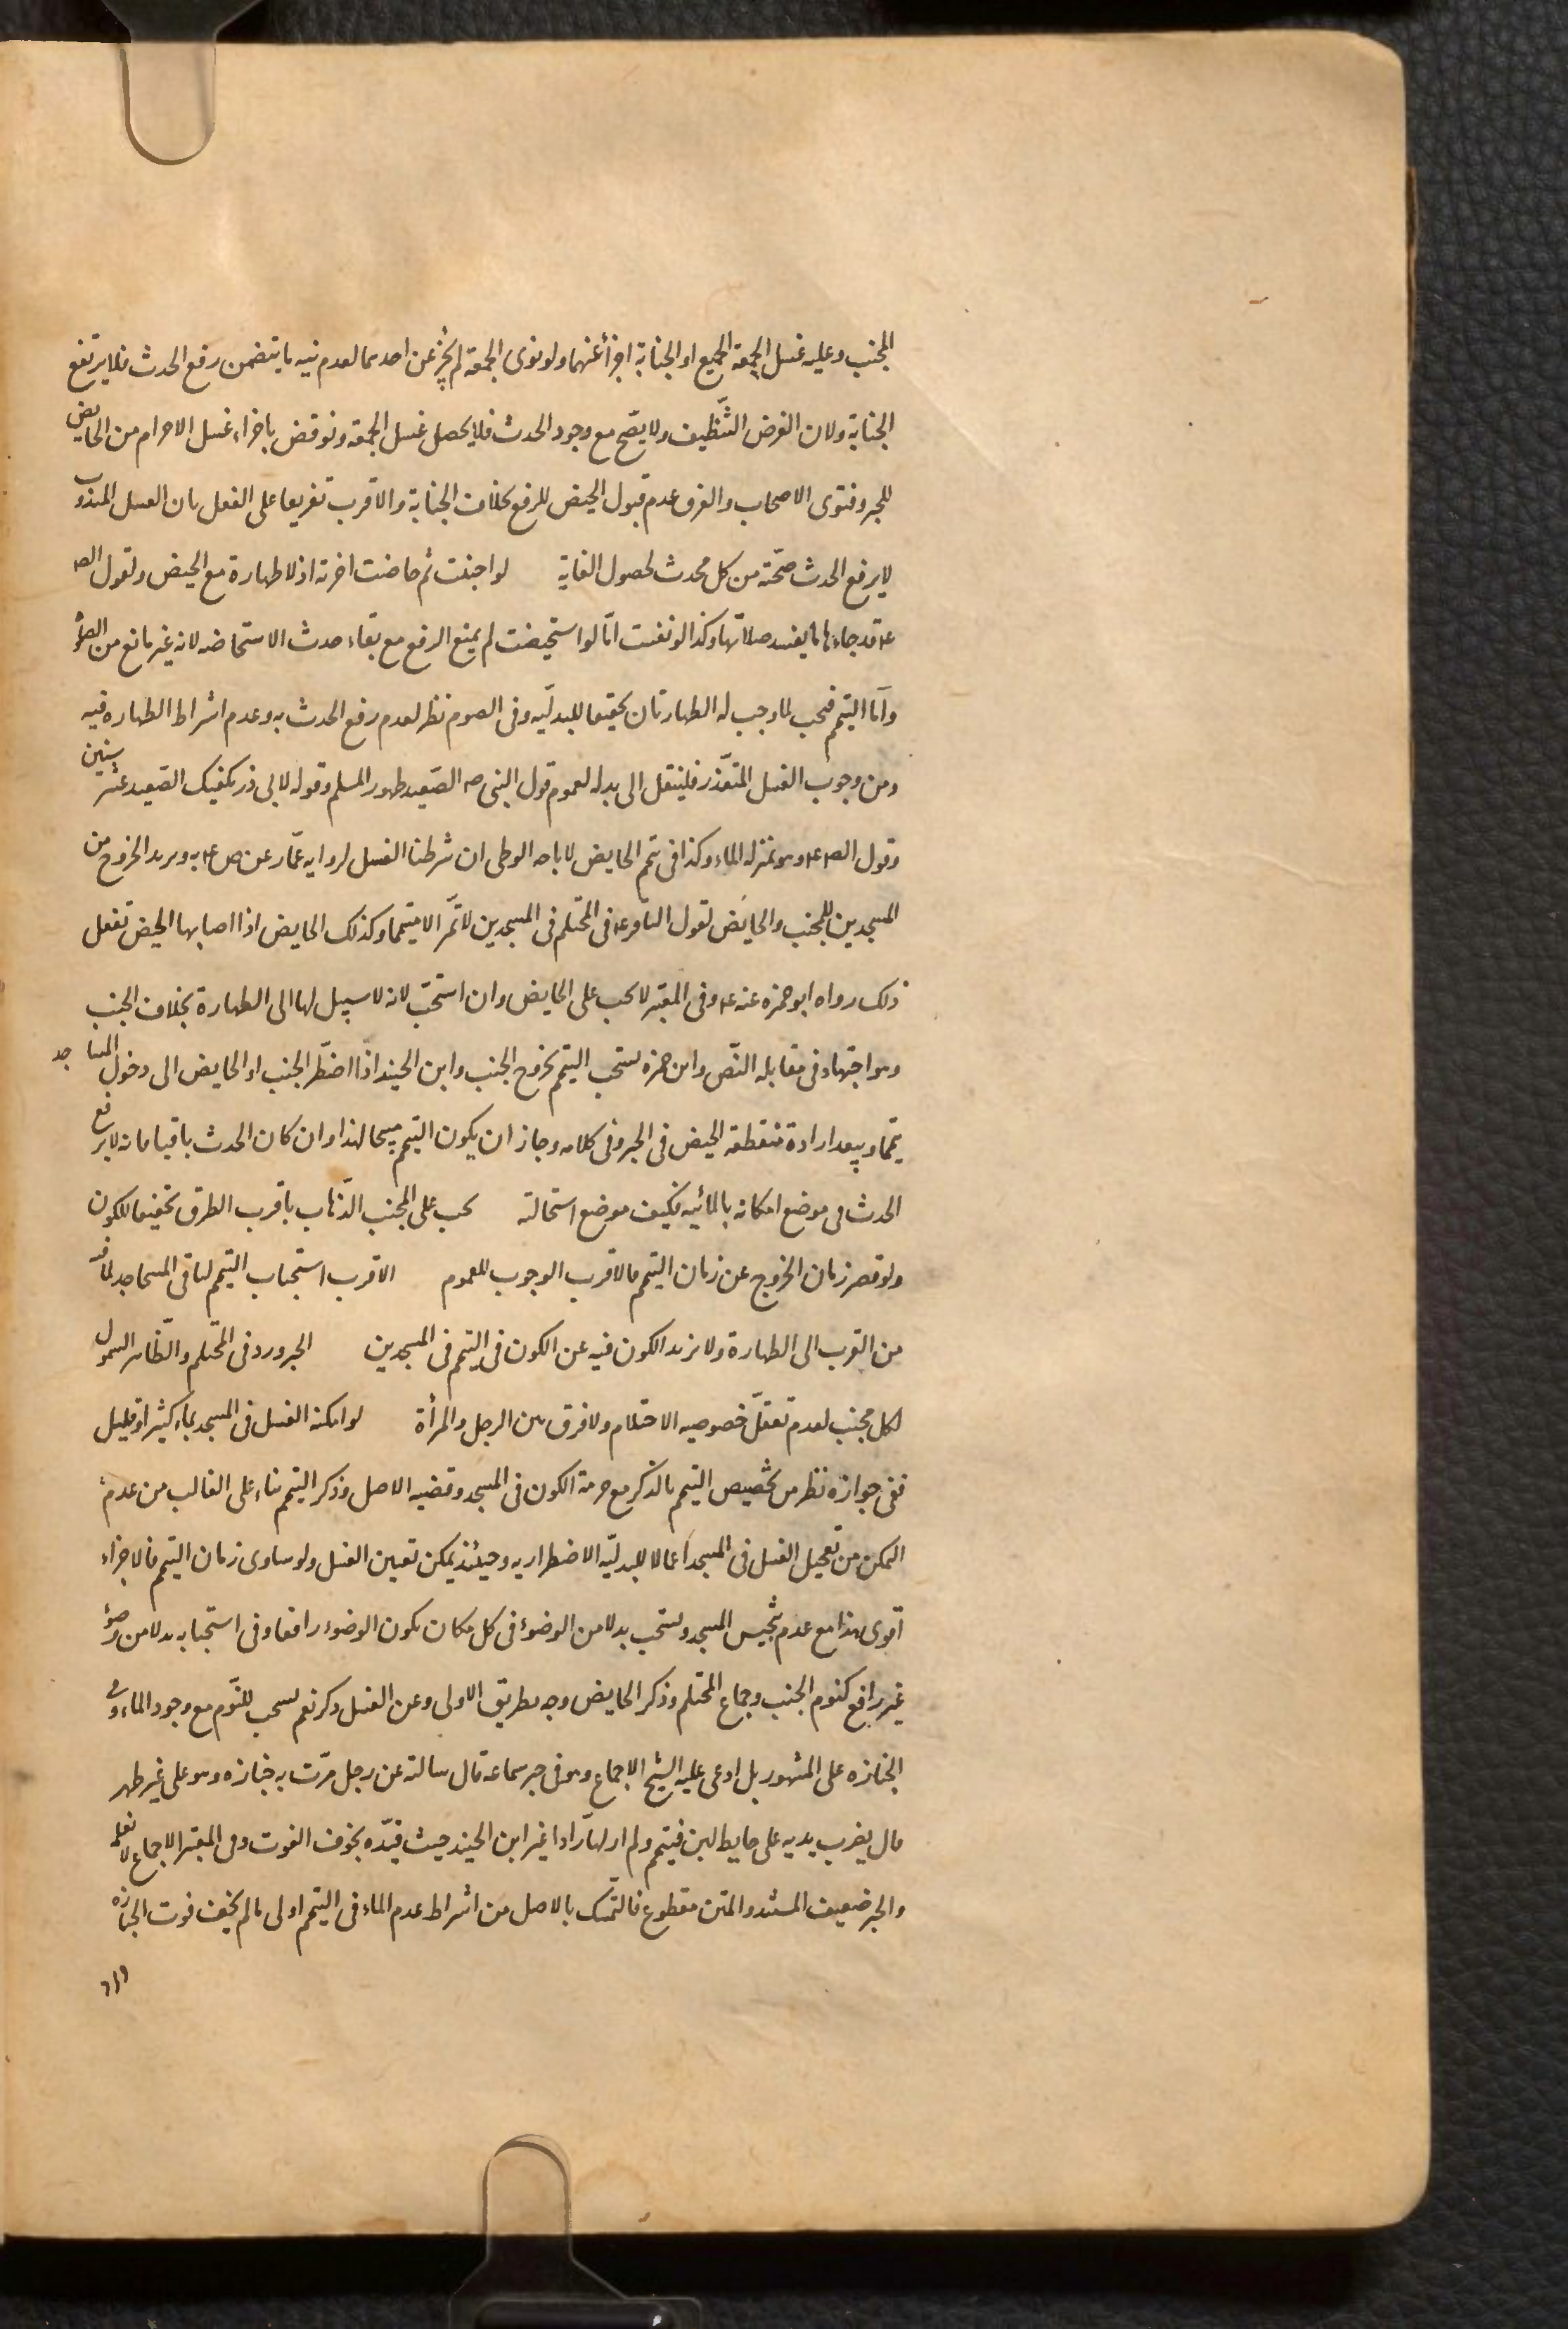 المجنب وعليه غسل الجمعة الجميع او الجنابة اجزأ عنهما ولو نوى الجمعة لم يُجز عن احدهما لعدم نيه ما يتضمن رفع الحدث فلا يرتفع
الجنابة ولان الغرض التنظيف ولا يصح مع وجود الحدث فلا يحصل غسل الجمعة ونوقض باجزاء غسل الاحرام من الحايض
للخبر وفتوى الاصحاب والفرق عدم قبول الحيض للرفع بخلاف الجنابة والاقرب تفريعا على القول بان الغسل المندوب
لا يرفع الحدث صحته من كل محدث لحصول الغاية لو اجنبت ثم حاضت اخرته اذ لا طهارة مع الحيض ولقول الص
ع قد جاءها ما يفسد صلاتها وكذا لو نفست امّا لو استحيضت لم يمنع الرفع مع بقاء حدث الاستحاضه لانه غير مانع من الصلوة
وامّا التيمم فيجب لما وجب له الطهارتان تحقيقا للبدليّه وفى الصوم نظر لعدم رفع الحدث به وعدم اشراط الطهاره فيه
ومن وجوب الغسل المتعذّر فلينتقل الى بدله لعموم قول النبى ص الصّعيد طهور المسلم وقوله لابى ذر يكفيك الصّعيد عشر سنين
وقول الص ع وهو بمنزله الماء وكذا فى تيمم الحايض لاباحه الوطى ان شرطنا الغسل لروايه عمّار عن ص ع به ومريد الخروج من
المسجدين للمجنب والحايض لقول الباقر ع فى المحتلم فى المسجدين لا تمرّ الا متيمما وكذلك الحايض اذا اصابها الحيض تفعل
ذلك رواه ابو حمزه عنه ع وفى المعتبر لا يجب على الحايض وان استحبّ لانه لا سبيل لها الى الطهارة بخلاف الجنب
وهو اجتهاد فى مقابله النّص وابن حمزه يستحب التيمم لخروج الجنب وابن الجنيد اذا اضطّر الجنب او الحايض الى دخول المساجد
تيمّما ويبعد ارادة منقطعة الحيض فى الخبر وفى كلامه وجاز ان يكون التيمم مبيحا لهذا وان كان الحدث باقيا فانه لا يرفع
الحدث فى موضع امكانه بالمائيه فكيف موضع استحالته يجب على المجنب الذّهاب باقرب الطرق تخفيفا للكون
ولو قصر زمان الخروج عن زمان التيمم فالاقرب الوجوب للعموم الاقرب استحباب التيمم لباقى المساجد لما فيه
من القرب الى الطهارة ولا يزيد الكون فيه عن الكون فى التيمم فى المسجدين الخبر ورد فى المحتلم والظّاهر الشمول
لكل مجنب لعدم تعقّل خصوصيه الاحتلام ولا فرق بين الرجل والمرأة لو امكنه الغسل فى المسجد بماء كثير او قليل
ففى جوازه نظر من تخصيص التيمم بالذكر مع حرمة الكون فى المسجد وقضيه الاصل وذكر التيمم بناء على الغالب من عدم
التمكن من تعجيل الغسل فى المسجد اعمالا للبدليّه الاضطراريه وحينئذ يمكن تعيين الغسل ولو ساوى زمان التيمم فالاجزاء
اقوى هذا مع عدم تنجيس المسجد ويستحب بدلا من الوضوء فى كل مكان يكون الوضوء رافعا وفى استحبابه بدلا من وضوء
غير رافع كنوم الجنب وجماع المحتلم وذكر الحايض وجه بطريق الاولى وعن الغسل وكر نعم يستحب للنّوم مع وجود الماء وفى
الجنازه على المشهور بل ادعى عليه الشيخ الاجماع وهو فى خبر سماعه قال سالته عن رجل مرّت به جنازه وهو على غير طهر
قال يضرب يديه على حايط لبن فيتيمم ولم ار لها رادا غير ابن الجنيد حيث قيّده بخوف الفوت وفى المعتبر الاجماع لا نعلمه
والخبر ضعيف المسند والمتن مقطوع فالتمسّك بالاصل من اشراط عدم الماء فى التيمم اولى ما لم يخف فوت الجنازه